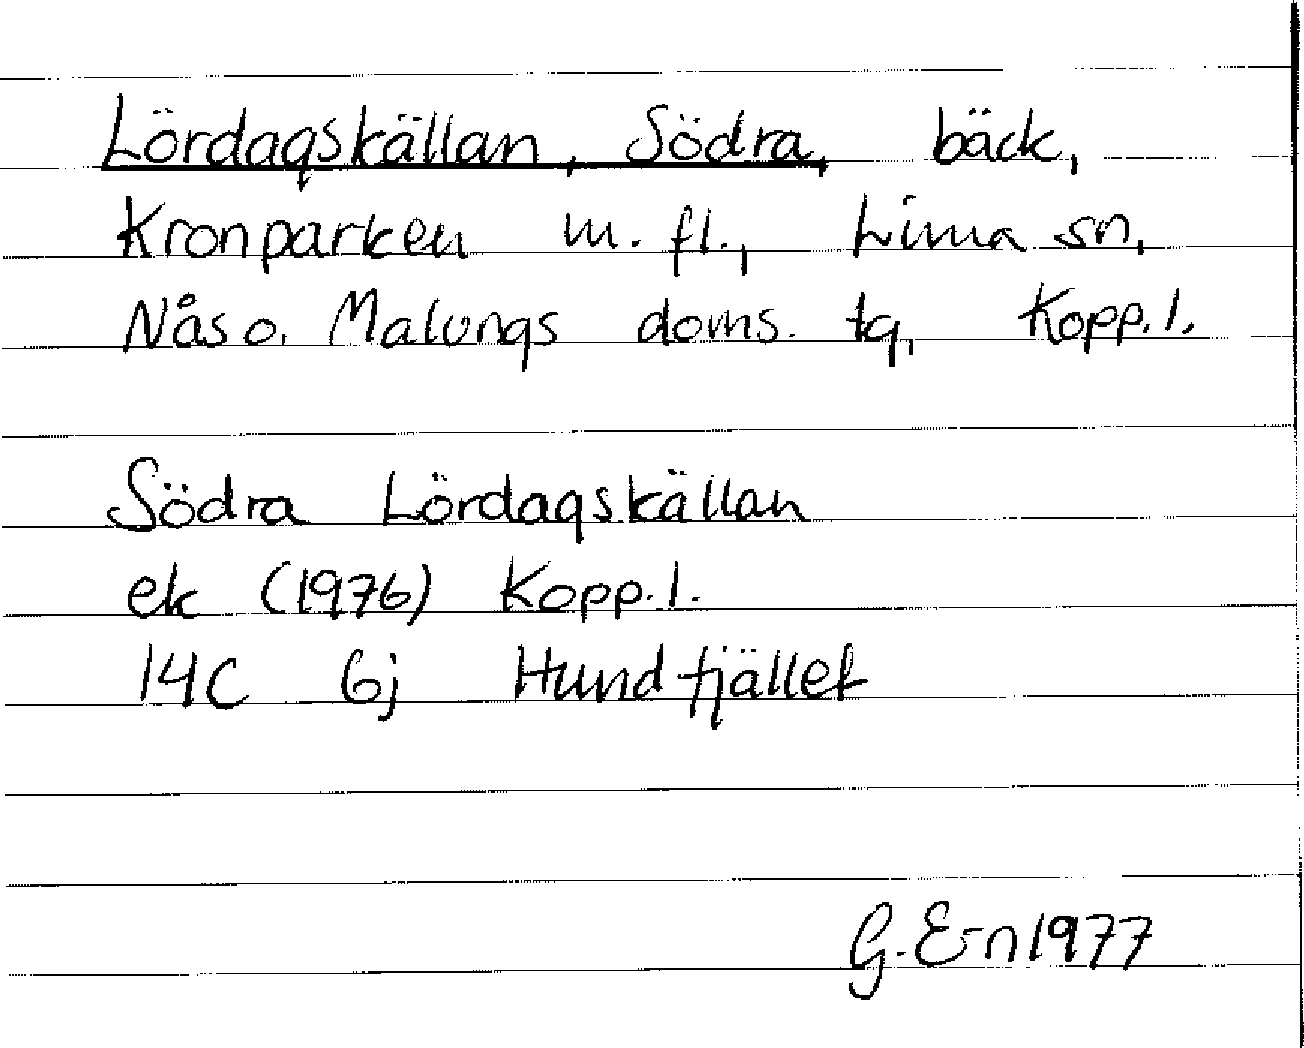 Lördagskällan, Södra, bäck,
Kronparken m. fl., Lima sn,
Nås o. Malungs doms. tg, Kopp. l.
Södra Lördagskällan
ek (1976) Kopp. l.
14C 6j Hundfjället
G. E-n 1977